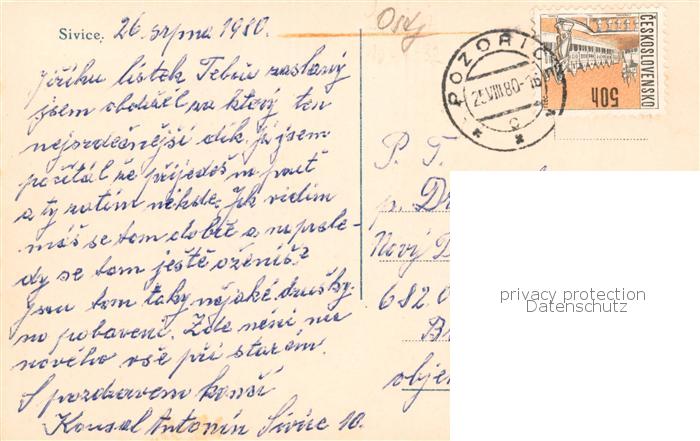 Sivice, 26. srpna 1980.
Jiříku lístek Tebou zaslaný
jsem obdržel za který ten
nejsrdečnější dík. já jsem
počítal že přijedeš na pouť
a ty zatím nekde. Jak vidím
máš se tam dobře a naposle-
dy se tam ještě oženíš?
jsou tam taky nějaké družky
na pobavení. Zde není nic
nového vše při starém.
S pozdravem končí
Konsel Antonín Sivice 10.
Osg
POZOŘICE
25.VIII.80-16
C
ČESKOSLOVENSKO
50h
P. T.
p. Dr
Nový D
682 0
B
obje
privacy protection
Datenschutz